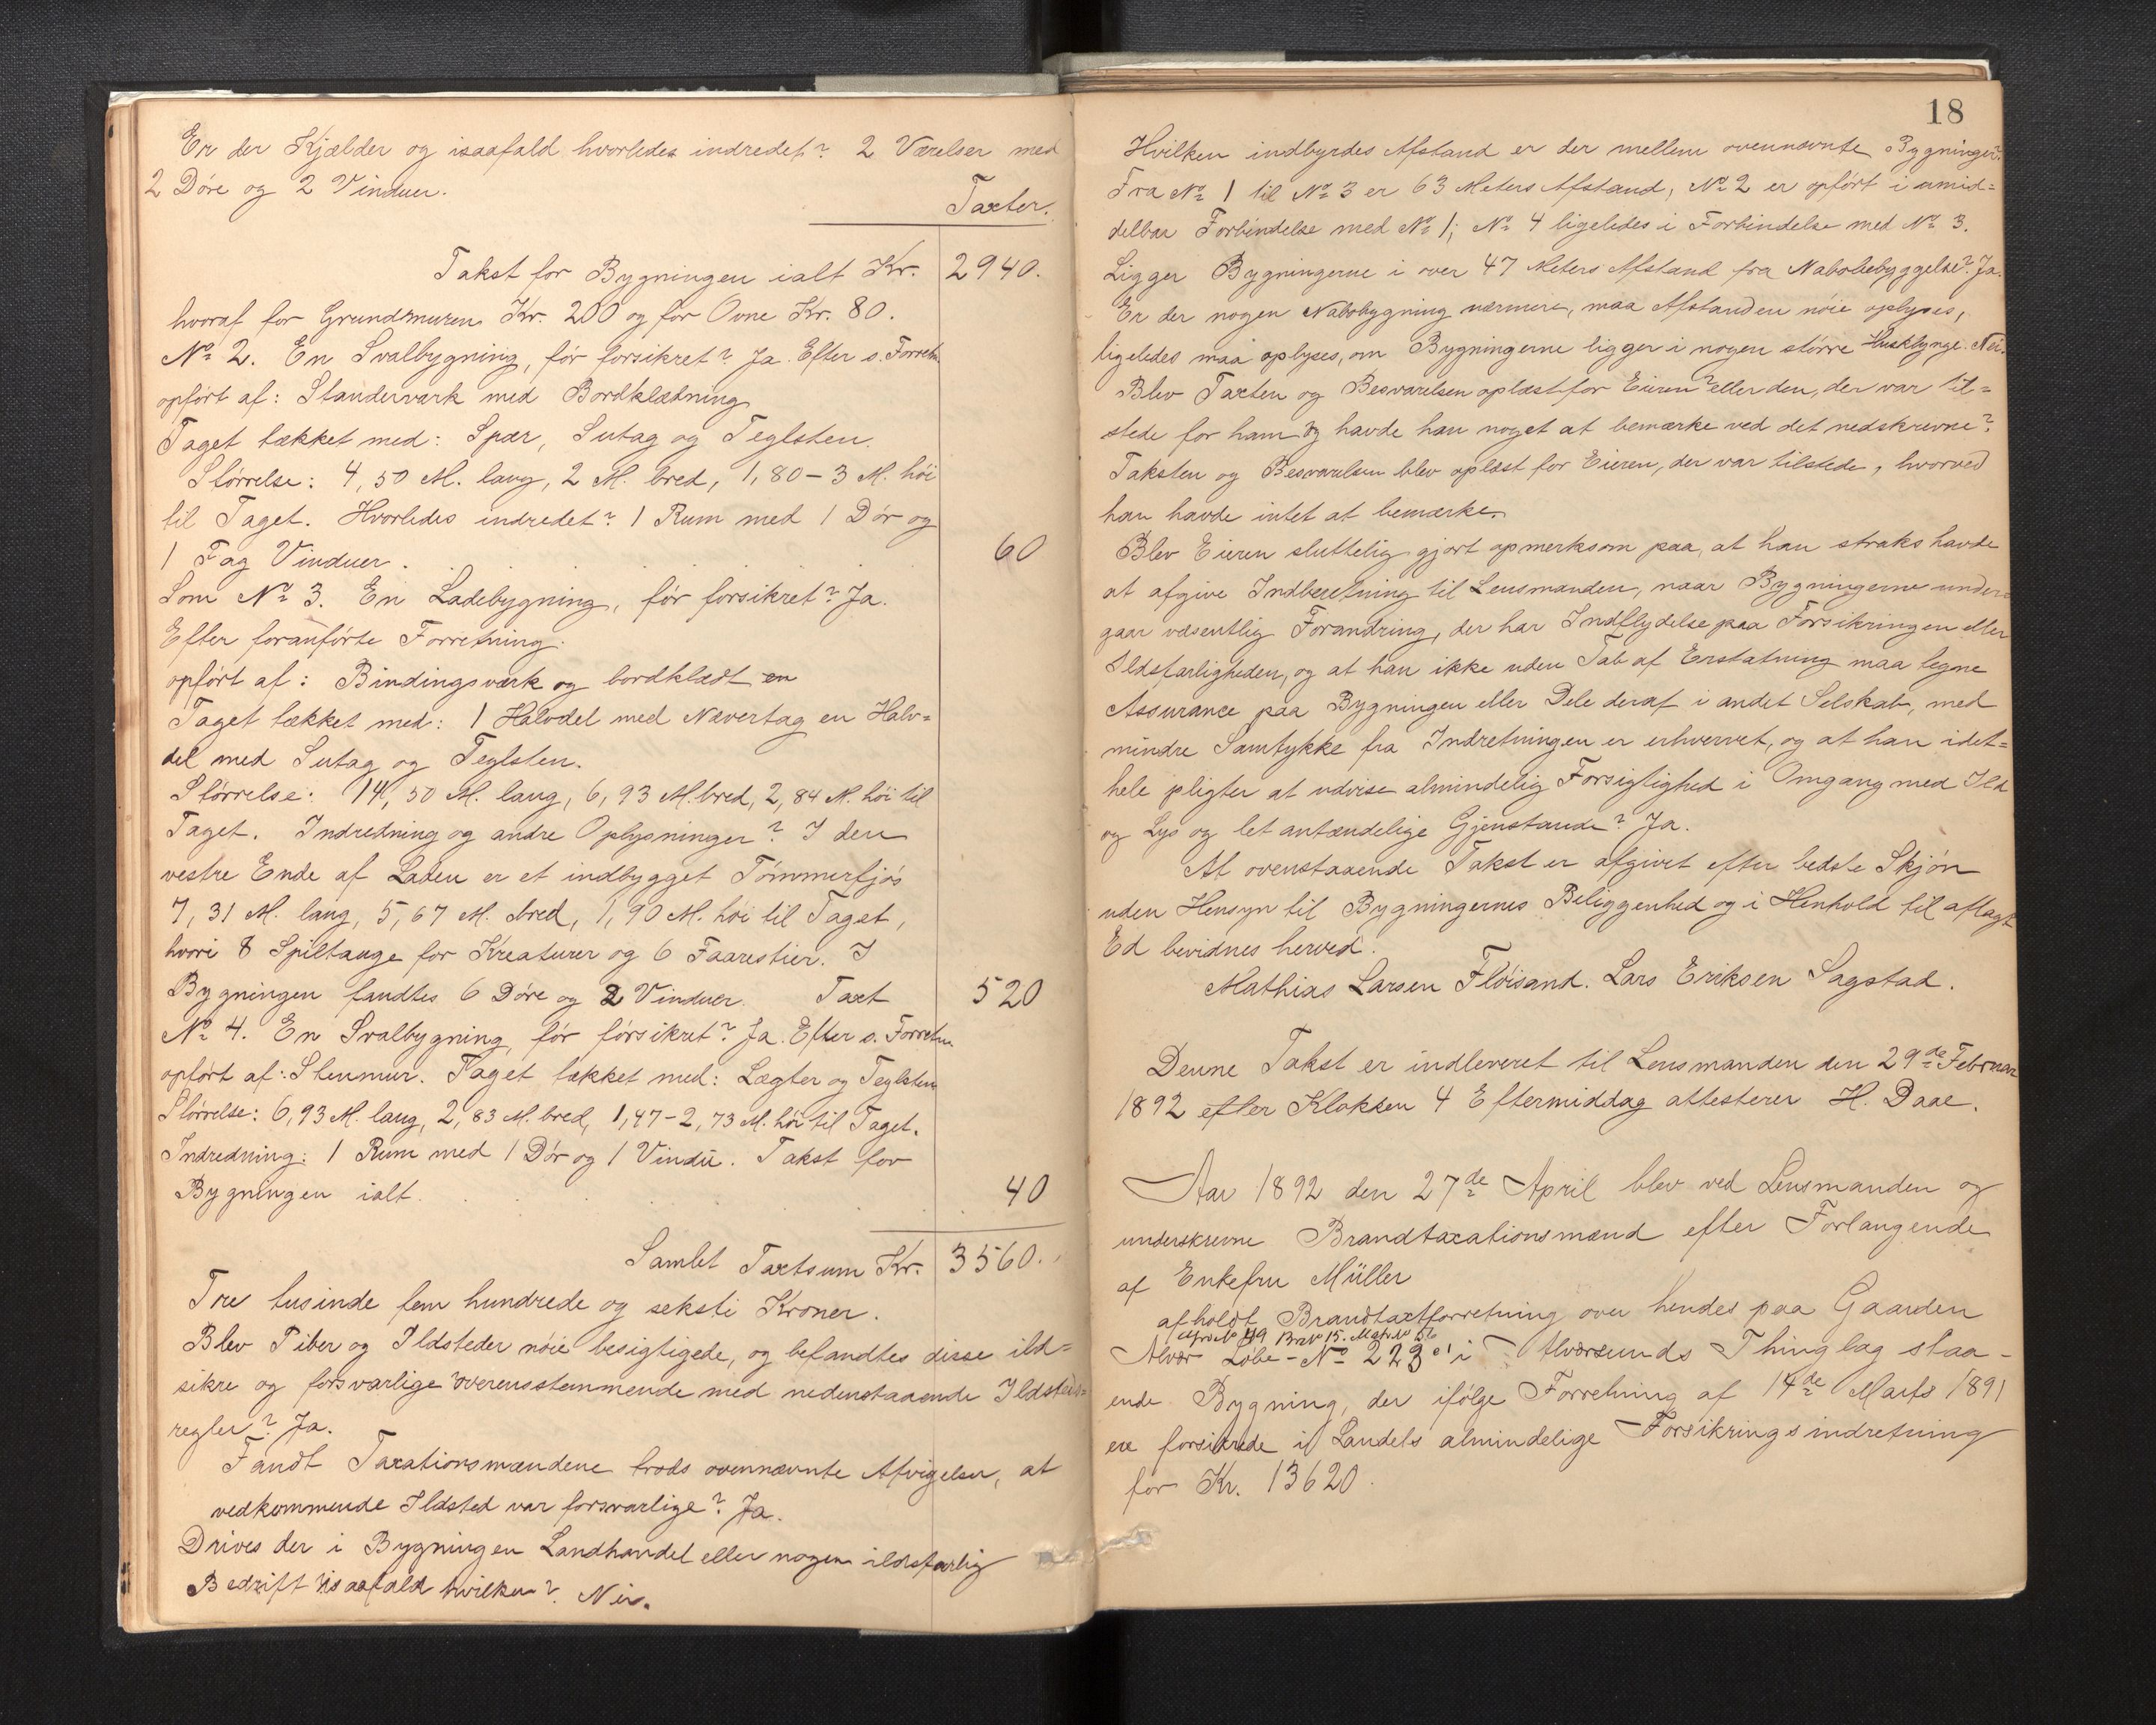 Er der Kjælder og isaafald hvorledes indredet? 2 Værelser med
2 Døre og 2 Vinduer.
Taxter.
Takst for Bygningen ialt Kr. 2940.
hvoraf for Grundmuren Kr. 200 og for Ovne Kr. 80.
No 2. En Svalbygning, før forsikret? Ja. Efter s. Forretn.
opført af: Standerværk med Bordklædning
Taget tækket med: Spær, Sutag og Teglsten.
Størrelse: 4,50 M. lang, 2 M. bred, 1,80 – 3 M. høi
til Taget. Hvorledes indredet? 1 Rum med 1 Dør og
1 Fag Vinduer . . . . 60
Som No 3. En Ladebygning, før forsikret? Ja.
Efter foranførte Forretning.
opført af: Bindingsværk og bordklædt en
Taget tækket med: 1 Halvdel med Nævertag en Halv=
del med Sutag og Teglsten.
Størrelse: 14,50 M. lang, 6,93 M. bred, 2,84 M. høi til
Taget. Indredning og andre Oplysninger? I den
vestre Ende af Laden er et indbygget Tømmerfjøs
7,31 M. lang, 5,67 M. bred, 1,90 M. høi til Taget,
hvori 8 Spiltauge for Kreaturer og 6 Faarestier. I
Bygningen fandtes 6 Døre og 2 Vinduer. Taxt 520
No 4. En Svalbygning, før forsikret? Ja. Efter s. Forretn.
opført af: Stenmur. Taget tækket med: Lægter og Teglsten
Størrelse: 6,93 M. lang, 2,83 M. bred, 1,47 – 2,73 M. høi til Taget.
Indredning: 1 Rum med 1 Dør og 1 Vindu. Takst for
Bygningen ialt . . . . 40
Samlet Taxtsum Kr. 3560.
Tre tusinde fem hundrede og seksti Kroner.
Blev Piber og Ildsteder nøie besigtigede, og befandtes disse ild=
sikre og forsvarlige overensstemmende med nedenstaaende Ildsteds=
regler? Ja.
Fandt Taxationsmændene trods ovennævnte Afvigelser, at
vedkommende Ildsted var forsvarlige? Ja.
Drives der i Bygningen Landhandel eller nogen ildsfarlig
Bedrift isaafald hvilken? Nei.
18
Hvilken indbyrdes Afstand er der mellem ovennævnte Bygninger?
Fra No 1 til No 3 er 63 Meters Afstand, No 2 er opført i umid=
delbar Forbindelse med No 1; No 4 ligeledes i Forbindelse med No 3.
Ligger Bygningerne i over 47 Meters Afstand fra Nabobebyggelse? Ja.
Er der nogen Nabobygning nærmere, maa Afstanden nøie oplyses,
ligeledes maa oplyses, om Bygningerne ligger i nogen større Husklynge. Nei.
Blev Taxten og Besvarelsen oplæst for Eieren eller den, der var til=
stede for ham og havde han noget at bemærke ved det nedskrevne?
Taksten og Besvarelsen blev oplæst for Eieren, der var tilstede, hvorved
han havde intet at bemærke.
Blev Eieren sluttelig gjort opmerksom paa, at han straks havde
at afgive Indberetning til Lensmanden, naar Bygningerne under=
gaar væsentlig Forandring, der har Indflydelse paa Forsikringen eller
Ildsfarligheden, og at han ikke uden Tab af Erstatning maa tegne
Assurance paa Bygningen eller Dele deraf i andet Selskab, med
mindre Samtykke fra Indretningen er erhvervet, og at han idet=
hele pligter at udvise almindelig Forsigtighed i Omgang med Ild
og Lys og let antændelige Gjenstande? Ja.
At ovenstaaende Takst er afgivet efter bedste Skjøn
uden Hensyn til Bygningernes Beliggenhed og i Henhold til aflagt
Ed bevidnes herved.
Mathias Larsen Fløisand. Lars Eriksen Sagstad.
Denne Takst er indleveret til Lensmanden den 29de Februar
1892 efter Klokken 4 Eftermiddag attesterer H. Daae.
Aar 1892 den 27de April blev ved Lensmanden og
underskrevne Brandtaxationsmænd efter Forlangende
af Enkefru Müller
afholdt Brandtaxtforretning over hendes paa Gaarden
49 Br No 15. Matr No 56
Alvær Løbe-No 223 i Alværsunds Thinglag staa-
ende Bygning, der ifølge Forretning af 14de Marts 1891
ere forsikrede i Landets almindelige Forsikringsindretning
for Kr. 13620.